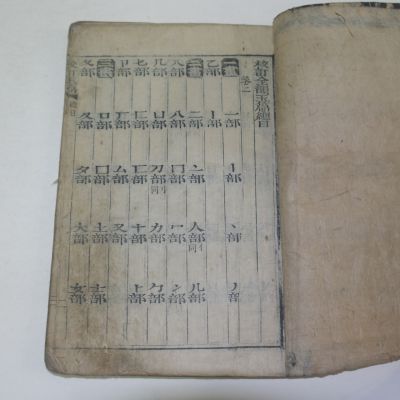 校訂全韻玉篇總目
卷上
一畫 一部 丨部 丶部 丿部
乙部 亅部
二畫 二部 亠部 人部亻同 儿部
入部 八部 冂部 冖部 冫部
几部 凵部 刀部刂同 力部 勹部
匕部 匚部 匸部 十部 卜部
卩部 厂部 厶部 又部
三畫 口部 囗部 土部 士部
夂部 夊部 夕部 大部 女部